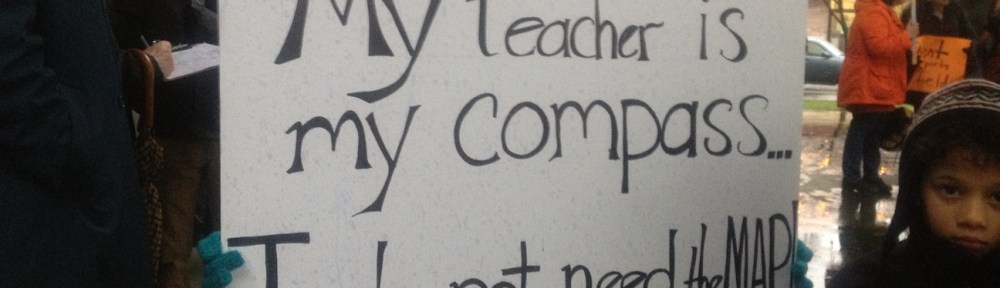 My Teacher is
my compass...
I do not need the MAP!